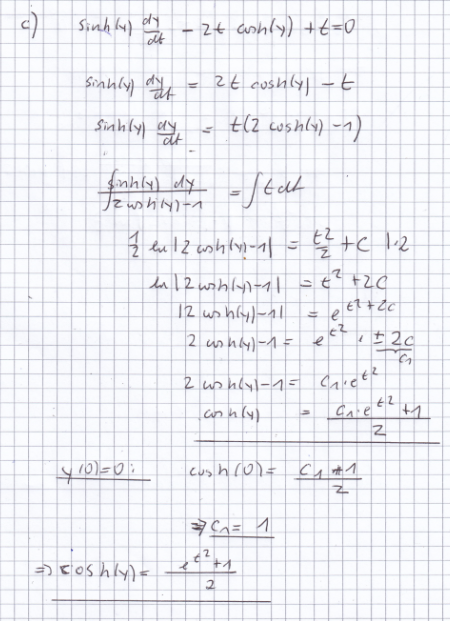 c) sinh(y) dy/dt - 2t cosh(y) + t = 0
sinh(y) dy/dt = 2t cosh(y) - t
sinh(y) dy/dt = t(2 cosh(y) - 1)
∫ sinh(y) dy / 2 cosh(y) - 1 = ∫ t dt
1/2 ln |2 cosh(y) - 1| = t²/2 + C | · 2
ln |2 cosh(y) - 1| = t² + 2C
|2 cosh(y) - 1| = e^(t² + 2C)
2 cosh(y) - 1 = e^(t²) · ± 2C
C₁
2 cosh(y) - 1 = C₁ · e^(t²)
cosh(y) = (C₁ · e^(t²) + 1) / 2
y(0) = 0 : cosh(0) = (C₁ + 1) / 2
⇒ C₁ = 1
⇒ cosh(y) = (e^(t²) + 1) / 2